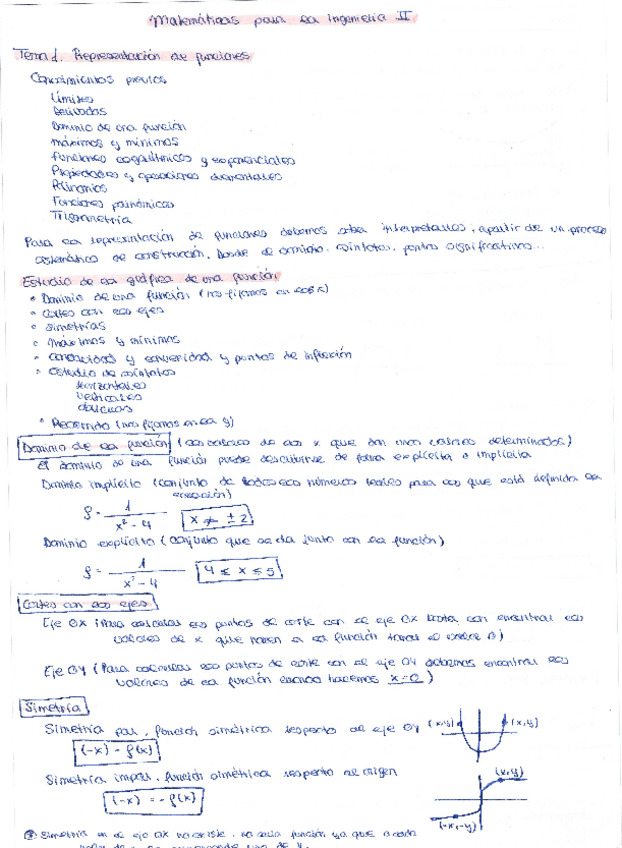 Matemáticas para la ingeniería II
Tema 1. Representación de funciones
Conocimientos previos
Límites
Derivadas
Dominio de una función
Máximos y mínimos
Funciones logarítmicas y exponenciales
Propiedades y operaciones elementales
Polinomios
Funciones polinómicas
Trigonometría
Para la representación de funciones debemos saber interpretarlas, a partir de un proceso
sistemático de construcción. Donde dominio, asíntotas, puntos significativos...
Estudio de la gráfica de una función
• Dominio de una función (nos fijamos en las x)
• Cortes con los ejes
• Simetrías
• Máximos y mínimos
• Concavidad y convexidad y puntos de inflexión
• Estudio de asíntotas
Horizontales
Verticales
Oblicuas
• Recorrido (nos fijamos en la y)
Dominio de la función (los valores de las x que dan unos valores determinados)
El dominio de una función puede describirse de forma explícita o implícita
Dominio implícito (conjunto de todos los números reales para los que está definida la
ecuación)
f = 1 / x² - 4 x ≠ ± 2
Dominio explícito (conjunto que se da junto con la función)
f = 1 / x² - 4 4 ≤ x ≤ 5
Cortes con los ejes
Eje OX (Para calcular los puntos de corte con el eje OX basta con encontrar los
valores de x que hacen a la función tomar el valor 0)
Eje OY (Para calcular los puntos de corte con el eje OY debemos encontrar los
valores de la función cuando hacemos x=0)
Simetría
Simetría par, función simétrica respecto al eje OY (-x,y) (x,y)
(-x) = f(x)
Simetría impar, función simétrica respecto al origen (x,y)
(-x) = -f(x) (-x,-y)
Simetría en el eje OX no existe, no sería función ya que a cada